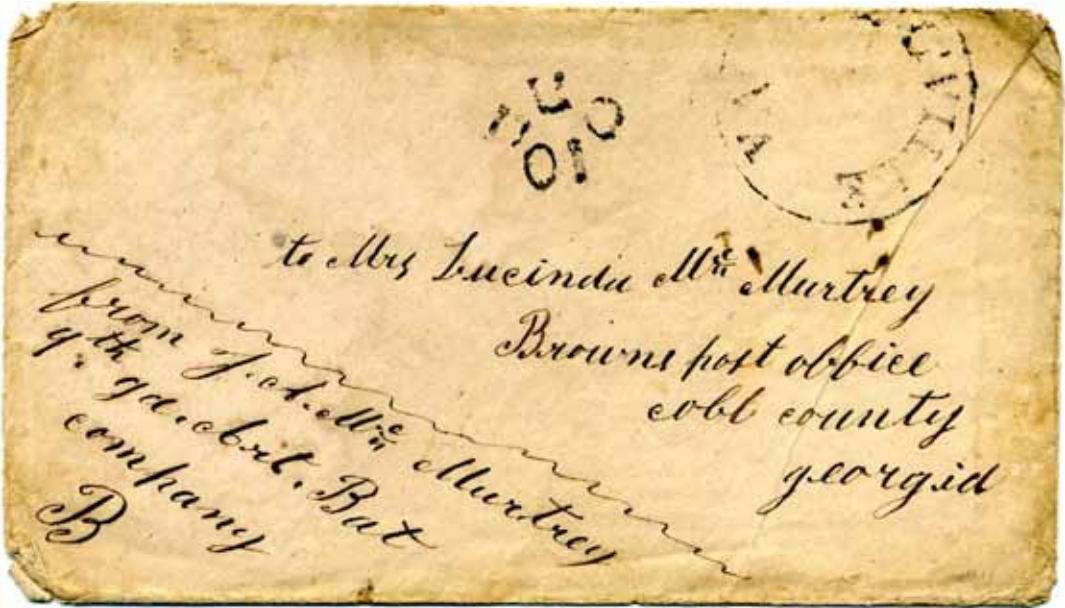 GVILLE
VA
10
to Mrs Lucinda Mc Murtrey
Browns post office
cobb county
georgia
from J. A. Mc Murtrey
9th ga. Art. Bat
company
B